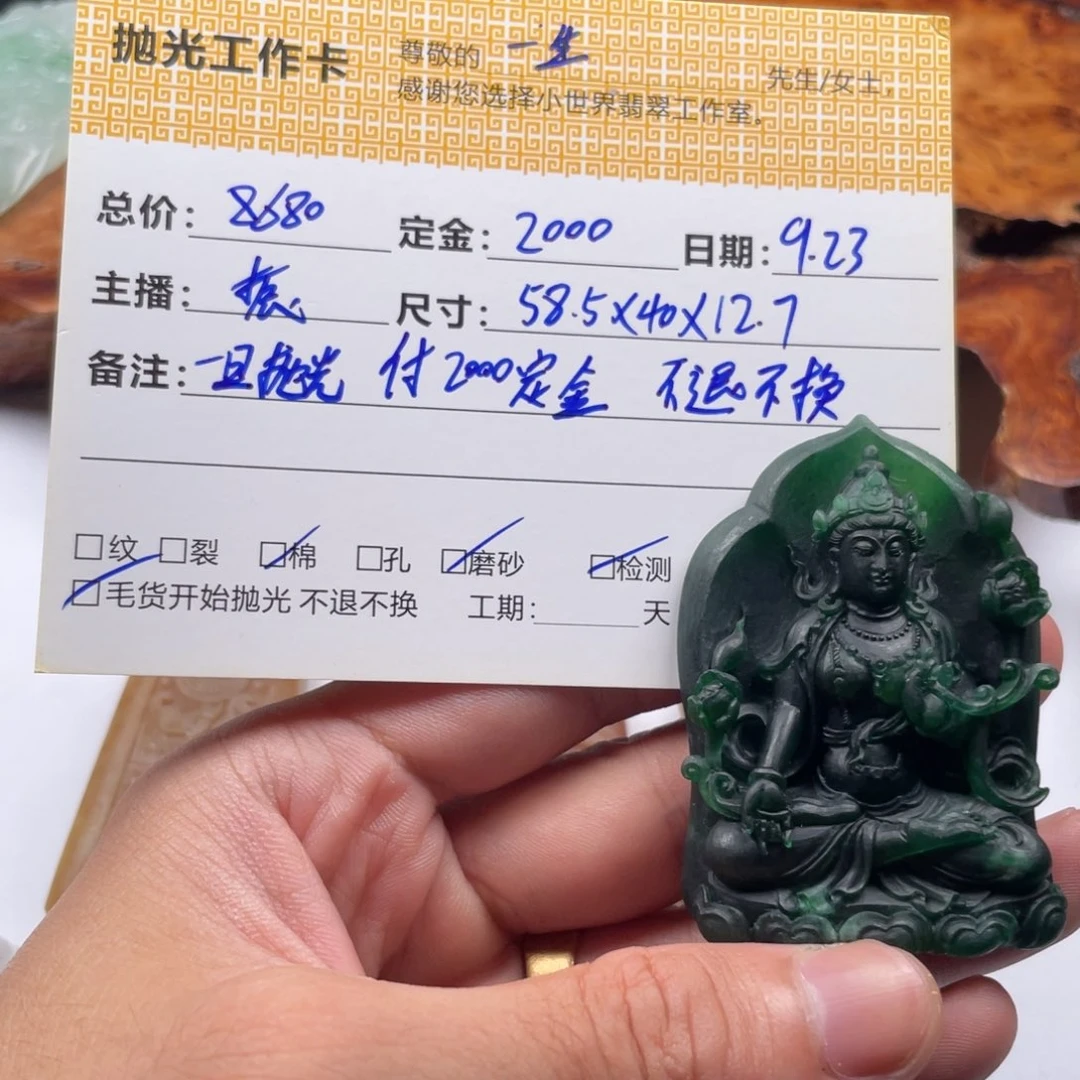 抛光工作卡
尊敬的 一生 先生/女士,
感谢您选择小世界翡翠工作室。
总价: 8680 定金: 2000 日期: 9.23
主播: 振 尺寸: 58.5X40X12.7
备注: 一旦抛光 付2000定金 不退不换
□纹 □裂 □棉 □孔 □磨砂 □检测
□毛货开始抛光 不退不换 工期: 天